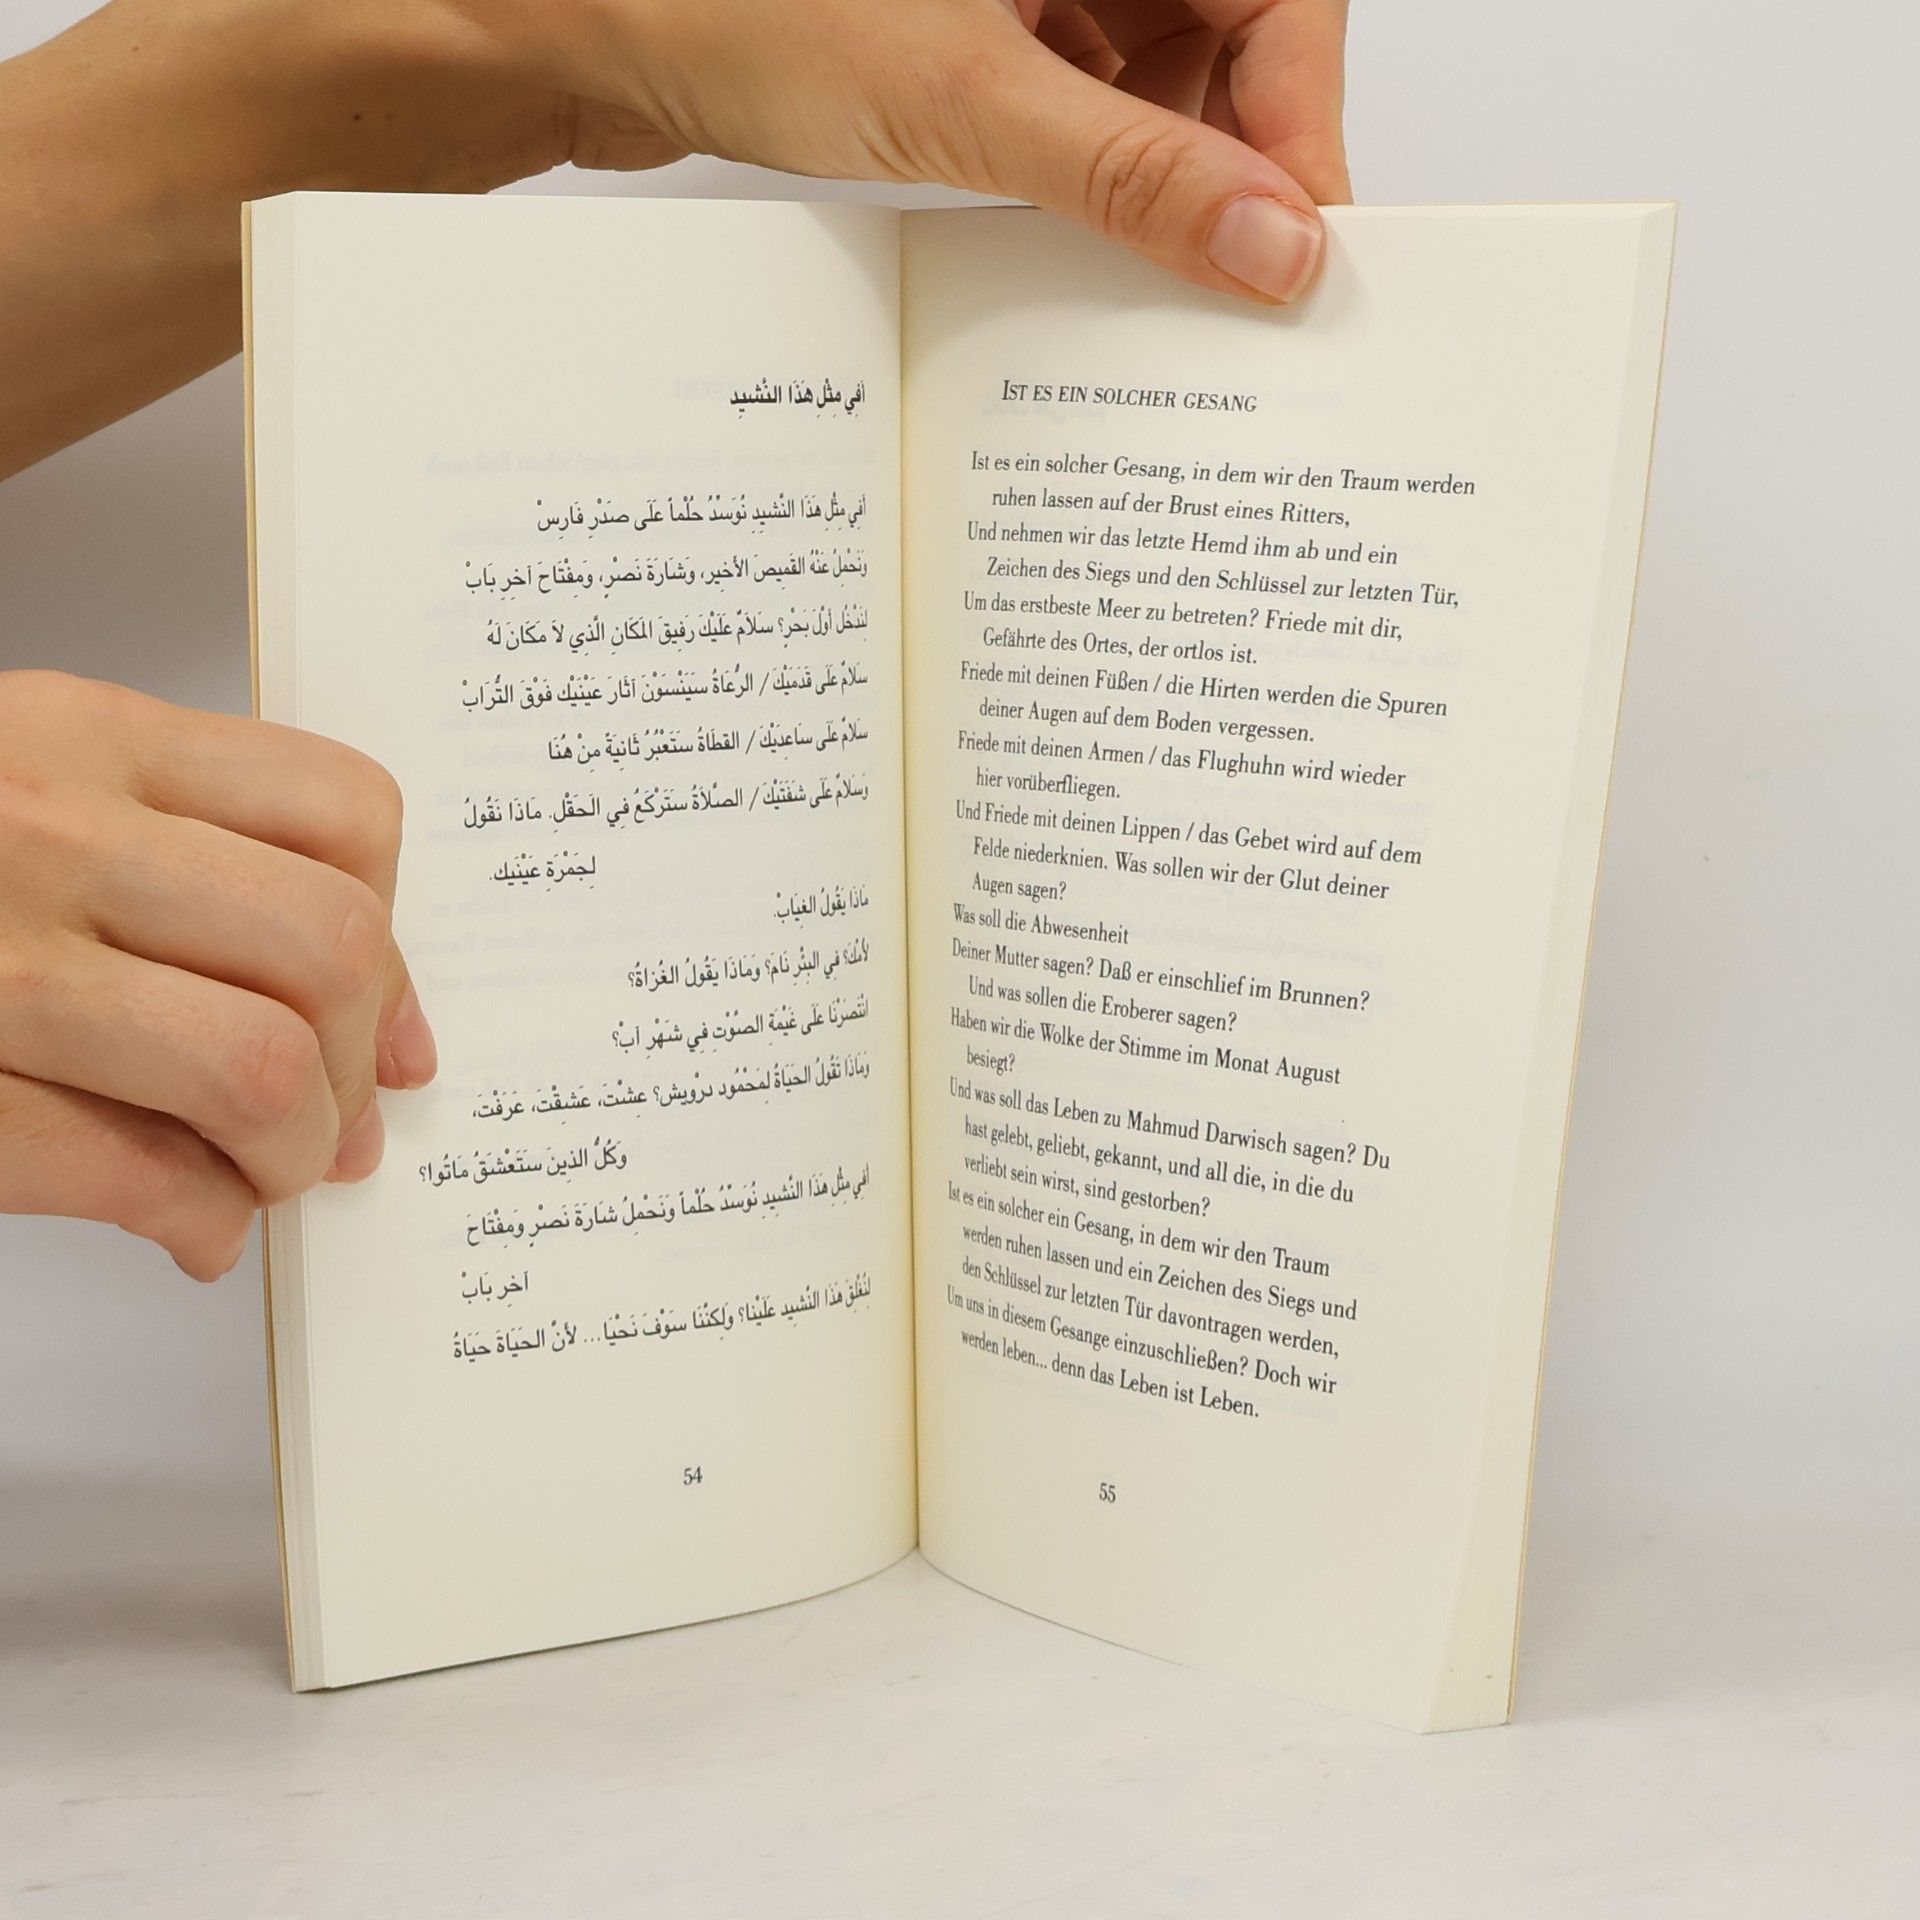 أَفِي مِثْلِ هَذَا النَّشيِدِ
أَفِي مِثْلِ هَذَا النَّشيِدِ نُوَسِّدُ حُلْماً عَلَى صَدْرِ فَارِسْ
وَنَحْمِلُ عَنْهُ القَمِيصَ الأَخِير، وَشَارَةَ نَصْرٍ، وَمِفْتَاحَ آخِرِ بَابْ
لِنَدْخُلَ أَوَّلَ بَحْرٍ؟ سَلاَمٌ عَلَيْكَ رَفِيقَ المَكَانِ الَّذِي لاَ مَكَانَ لَهُ
سَلاَمٌ عَلَى قَدَمَيْكَ / الرُّعَاةُ سَيَنْسَوْنَ آثَارَ عَيْنَيْك فَوْقَ التُّرَابْ
سَلاَمٌ عَلَى سَاعِدَيْكَ / القطَاةُ سَتَعْبُرُ ثَانِيَةً مِنْ هُنَا
وَسَلاَمٌ عَلَى شَفَتَيْكَ / الصَّلاَةُ سَتَرْكَعُ فِي الَحَقْلِ. مَاذَا نَقُولُ
لِجَمْرَةِ عَيْنَيك.
مَاذَا يَقُولُ الغِيَابْ.
لأُمِّكَ؟ فِي البِئْرِ نَامَ؟ وَمَاذَا يَقُولُ الغُزاةُ؟
انْتَصَرْنَا عَلَى غَيْمَةِ الصَّوْتِ فِي شَهْرِ آبْ؟
وَمَاذَا تَقُولُ الحَيَاةُ لِمَحْمُود درْويش؟ عِشْتَ، عَشقْتَ، عَرَفْتَ،
وَكُلُّ الذِينَ سَتَعْشَقُ مَاتُوا؟
أَفِي مِثْلِ هَذَا النَّشيِدِ نُوَسِّدُ حُلْماً وَنَحْمِلُ شَارَةَ نَصْرٍ وَمِفْتَاحَ
آخِرِ بَابْ
لِنُغْلِقَ هَذَا النَّشيِد عَلَيْنا؟ وَلِكنَّنَا سَوْفَ نَحْيَا... لأَنَّ الحَيَاةَ حَيَاةُ
54
IST ES EIN SOLCHER GESANG
Ist es ein solcher Gesang, in dem wir den Traum werden
ruhen lassen auf der Brust eines Ritters,
Und nehmen wir das letzte Hemd ihm ab und ein
Zeichen des Siegs und den Schlüssel zur letzten Tür,
Um das erstbeste Meer zu betreten? Friede mit dir,
Gefährte des Ortes, der ortlos ist.
Friede mit deinen Füßen / die Hirten werden die Spuren
deiner Augen auf dem Boden vergessen.
Friede mit deinen Armen / das Flughuhn wird wieder
hier vorüberfliegen.
Und Friede mit deinen Lippen / das Gebet wird auf dem
Felde niederknien. Was sollen wir der Glut deiner
Augen sagen?
Was soll die Abwesenheit
Deiner Mutter sagen? Daß er einschlief im Brunnen?
Und was sollen die Eroberer sagen?
Haben wir die Wolke der Stimme im Monat August
besiegt?
Und was soll das Leben zu Mahmud Darwisch sagen? Du
hast gelebt, geliebt, gekannt, und all die, in die du
verliebt sein wirst, sind gestorben?
Ist es ein solcher ein Gesang, in dem wir den Traum
werden ruhen lassen und ein Zeichen des Siegs und
den Schlüssel zur letzten Tür davontragen werden,
Um uns in diesem Gesange einzuschließen? Doch wir
werden leben... denn das Leben ist Leben.
55